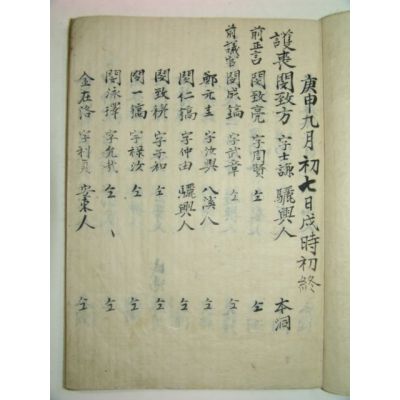 庚申九月初七日戌時初終
護喪閔致方 字士謙 驪興人 本洞
前正言閔致亮 字周賢 仝 仝
前議官閔成鎬 字武章 仝 仝
鄭元圭 字汝興 八溪人 仝
閔仁鎬 字仲由 驪興人 仝
閔致 字子和 仝 仝
閔一鎬 字祿汝 仝 仝
閔泳 字允 仝 仝
金在洛 字利見 人 仝